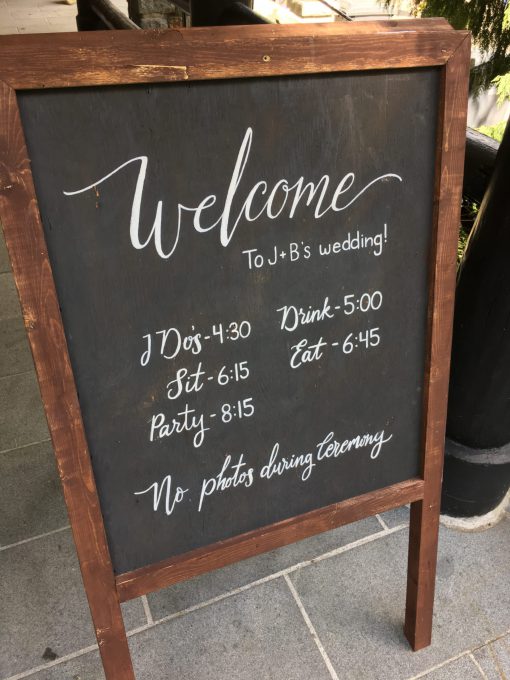 Welcome
To J+B's wedding!
I Do's - 4:30
Drink - 5:00
Sit - 6:15
Eat - 6:45
Party - 8:15
No photos during Ceremony